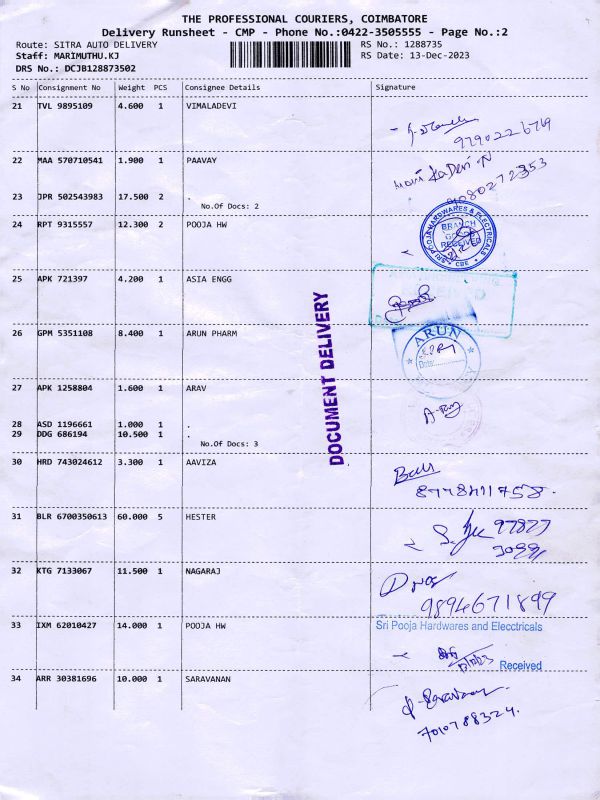 THE PROFESSIONAL COURIERS, COIMBATORE
Delivery Runsheet - CMP - Phone No.:0422-3505555 - Page No.:2
Route: SITRA AUTO DELIVERY RS No.: 1288735
Staff: MARIMUTHU.KJ RS Date: 13-Dec-2023
DRS No.: DCJB128873502
S No Consignment No Weight PCS Consignee Details Signature
21 TVL 9895109 4.600 1 VIMALADEVI
9790226769
22 MAA 570710541 1.900 1 PAAVAY
23 JPR 502543983 17.500 2 .
9080272353
No.Of Docs: 2
24 RPT 9315557 12.300 2 POOJA HW
SRI POOJA HARDWARES & ELECTRICALS
BRANCH
GOODS
RECEIVED
CBE
25 APK 721397 4.200 1 ASIA ENGG
26 GPM 5351108 8.400 1 ARUN PHARM
ARUN
Date:
DOCUMENT DELIVERY
27 APK 1258804 1.600 1 ARAV
28 ASD 1196661 1.000 1 .
29 DDG 686194 10.500 1 .
No.Of Docs: 3
30 HRD 743024612 3.300 1 AAVIZA
31 BLR 6700350613 60.000 5 HESTER
97827
32 KTG 7133067 11.500 1 NAGARAJ
9894671899
33 IXM 62010427 14.000 1 POOJA HW
Sri Pooja Hardwares and Elecctricals
Received
34 ARR 30381696 10.000 1 SARAVANAN
7010788324.